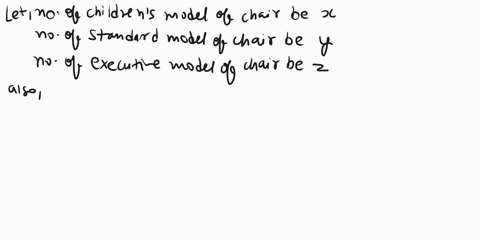 Let, no. of children's model of chair be x
no. of standard model of chair be y
no. of executive model of chair be z
also,